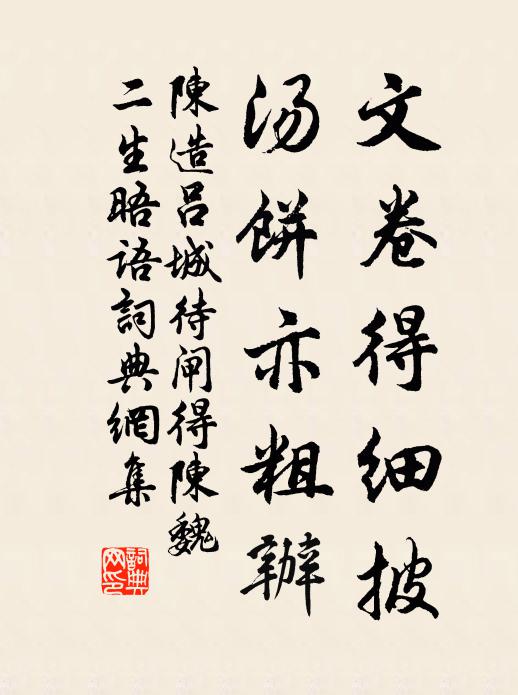 文卷得细披
汤餅亦粗辦
陳造吕城待闸得陳魏
二生晤语詞典網集
詞典网印